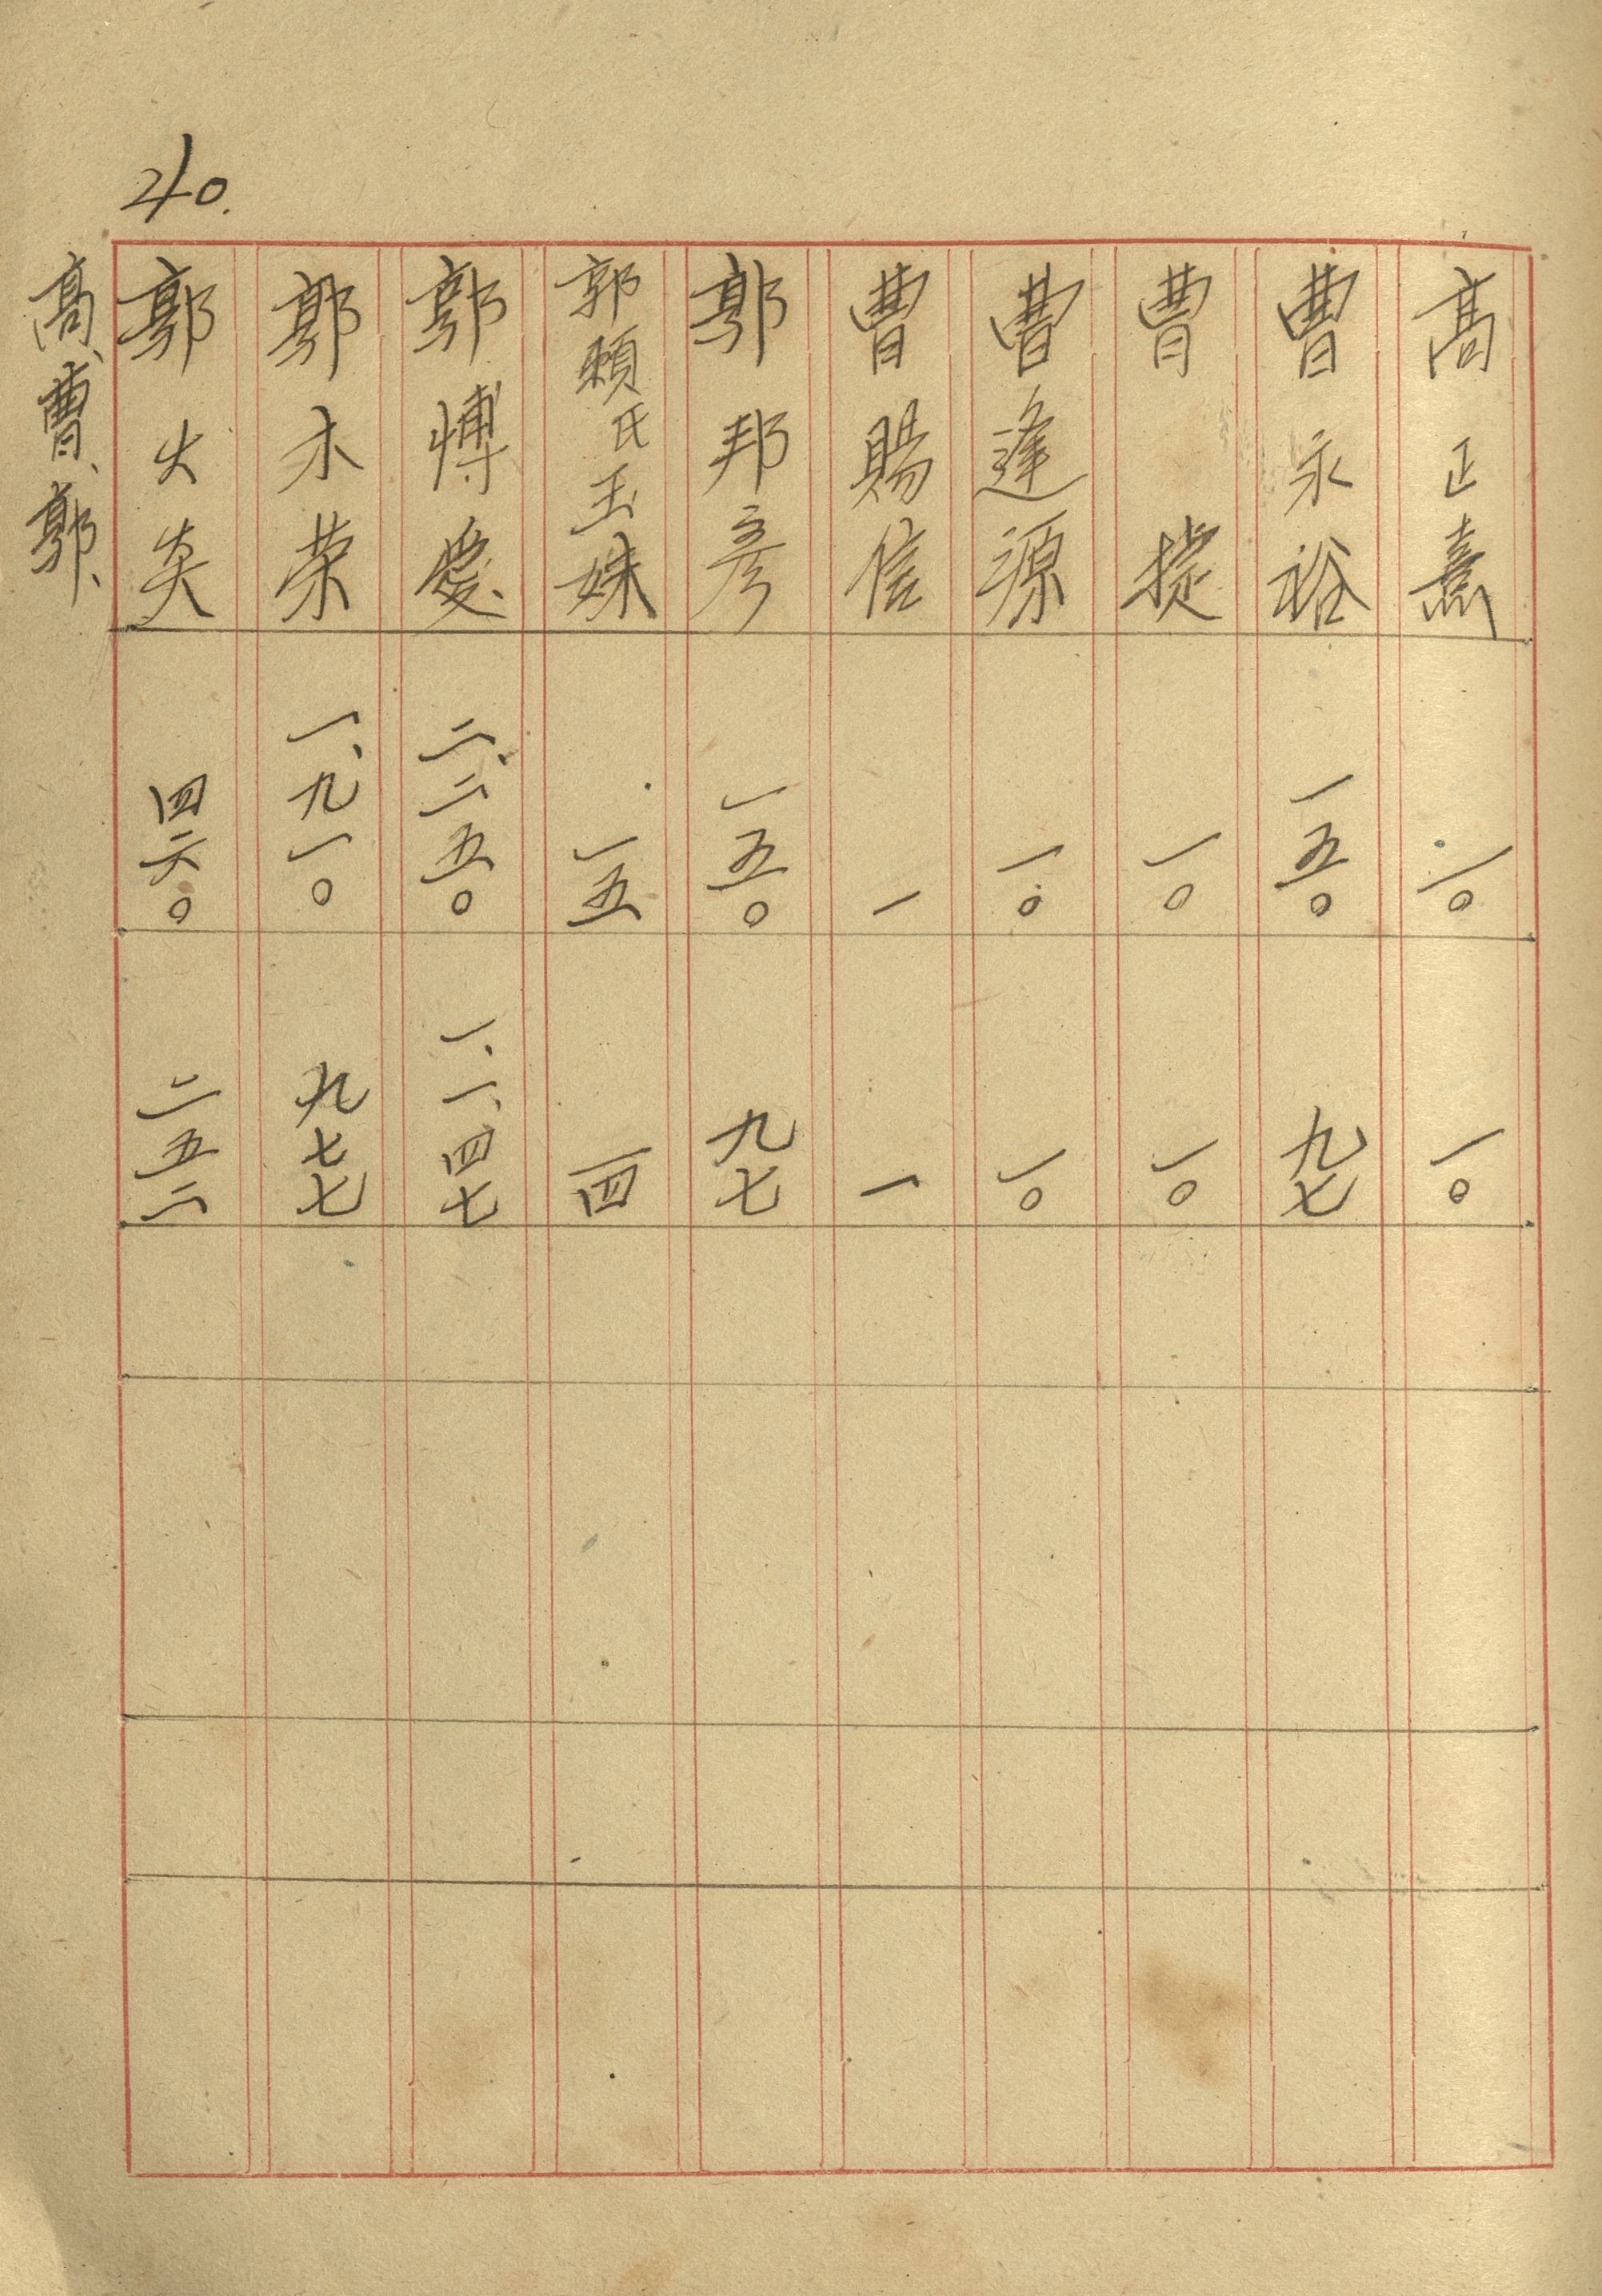 40.
高正熹 一〇 一〇
曹永裕 一五〇 九七
曹捷 一〇 一〇
曹逢源 一〇 一〇
曹賜信 一 一
郭邦彥 一五〇 九七
郭賴氏玉妹 一五 一四
郭博愛 二、二五〇 一、一四七
郭木荣 一、九一〇 九七七
郭火炎 四六〇 二五二
高、曹、郭、